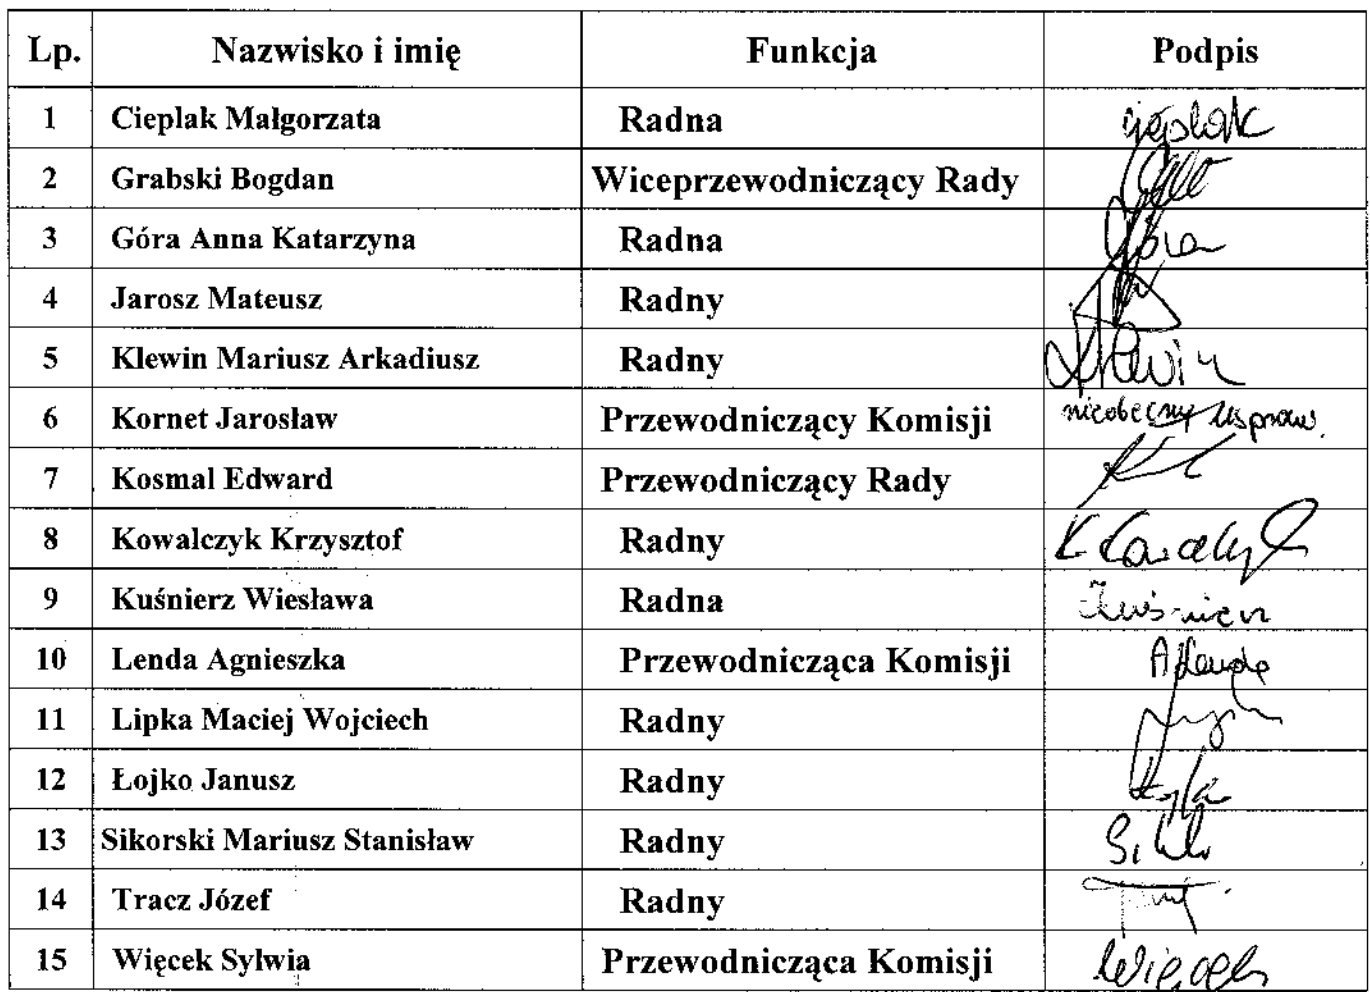 Lp. Nazwisko i imię Funkcja Podpis
1 Cieplak Małgorzata Radna Cieplak
2 Grabski Bogdan Wiceprzewodniczący Rady
3 Góra Anna Katarzyna Radna Góra
4 Jarosz Mateusz Radny
5 Klewin Mariusz Arkadiusz Radny Klewin
6 Kornet Jarosław Przewodniczący Komisji nieobecny uspraw.
7 Kosmal Edward Przewodniczący Rady
8 Kowalczyk Krzysztof Radny K Kowalczyk
9 Kuśnierz Wiesława Radna Kuśnierz
10 Lenda Agnieszka Przewodnicząca Komisji A Lenda
11 Lipka Maciej Wojciech Radny
12 Łojko Janusz Radny
13 Sikorski Mariusz Stanisław Radny
14 Tracz Józef Radny
15 Więcek Sylwia Przewodnicząca Komisji Więcek